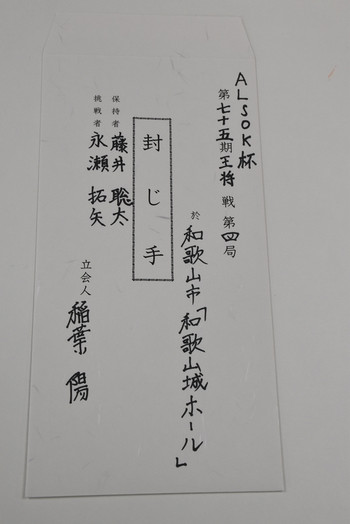 ALSOK杯
第七十五期王将戦 第四局
於 和歌山市「和歌山城ホール」
封じ手
保持者 藤井 聡太
挑戦者 永瀬 拓矢
立会人 稲葉 陽